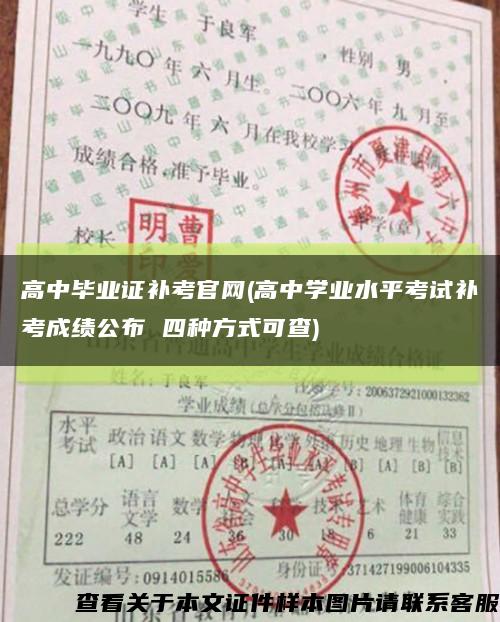 学生 于良军 , 性别 男 .
一九九〇 年 六 月生。 二〇〇六 年 九 月至
二〇〇九 年 六 月在我校学习
成绩合格,准予毕业。
校长
明曹
印爱
学(章)
高中毕业证补考官网(高中学业水平考试补
考成绩公布 四种方式可查)
山东省普通高中学生学业成绩合格证
姓名:于良军 学号: 2006372921000132362
学业成绩(总学分包括选修Ⅱ)
水平考试 政治 语文 数学 物理 化学 外语 历史 地理 生物 信息技术
[A] [A] [A] [B] [A] [B] [B]
总学分 语言文学 数学 科学 技术 艺术 体育健康 综合实践
222 48 24 36 30 18 6 21 33
发证编号: 0914015586 身份证号: 371427199006104335
查看关于本文证件样本图片请联系客服